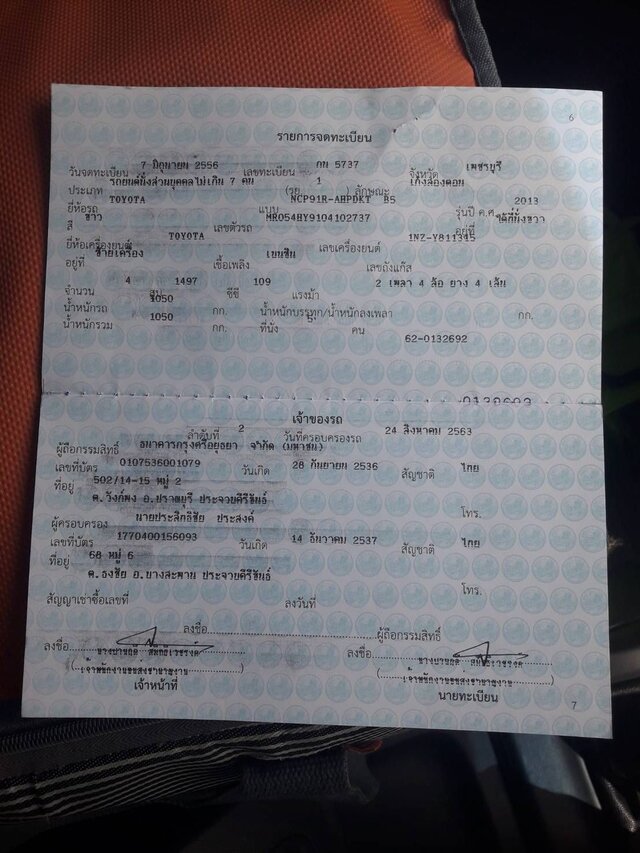 6
รายการจดทะเบียน
วันจดทะเบียน 7 มิถุนายน 2556 เลขทะเบียน กน 5737 จังหวัด เพชรบุรี
ประเภท รถยนต์นั่งส่วนบุคคลไม่เกิน 7 คน (รย. 1 ) ลักษณะ เก๋งสองตอน
ยี่ห้อรถ TOYOTA แบบ NCP91R-AHPDKT B5 รุ่นปี ค.ศ. 2013
สี ขาว เลขตัวรถ MR054HY9104102737 อยู่ที่
ยี่ห้อเครื่องยนต์ TOYOTA เลขเครื่องยนต์ 1NZ-Y811345
อยู่ที่ ซ้ายเครื่อง เชื้อเพลิง เบนซิน เลขถังแก๊ส
จำนวน 4 สูบ 1497 ซีซี 109 แรงม้า 2 เพลา 4 ล้อ ยาง 4 เส้น
น้ำหนักรถ 1050 กก. น้ำหนักบรรทุก/น้ำหนักลงเพลา กก.
น้ำหนักรวม 1050 กก. ที่นั่ง 5 คน
62-0132692
เจ้าของรถ
ลำดับที่ 2 วันที่ครอบครองรถ 24 สิงหาคม 2563
ผู้ถือกรรมสิทธิ์ ธนาคารกรุงศรีอยุธยา จำกัด (มหาชน)
เลขที่บัตร 0107536001079 วันเกิด 28 กันยายน 2536 สัญชาติ ไทย
ที่อยู่ 502/14-15 หมู่ 2
ต.วังก์พง อ.ปราณบุรี ประจวบคีรีขันธ์ โทร.
ผู้ครอบครอง นายประสิทธิชัย ประสงค์
เลขที่บัตร 1770400156093 วันเกิด 14 ธันวาคม 2537 สัญชาติ ไทย
ที่อยู่ 68 หมู่ 6
ต.ธงชัย อ.บางสะพาน ประจวบคีรีขันธ์ โทร.
สัญญาเช่าซื้อเลขที่ ลงวันที่
ลงชื่อ ผู้ถือกรรมสิทธิ์
ลงชื่อ ลงชื่อ
เจ้าหน้าที่ นายทะเบียน
7